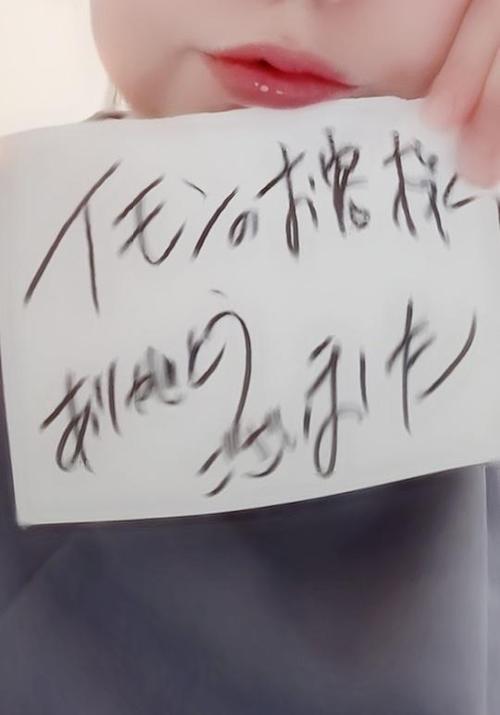 イモンのお客様
ありがとうございました